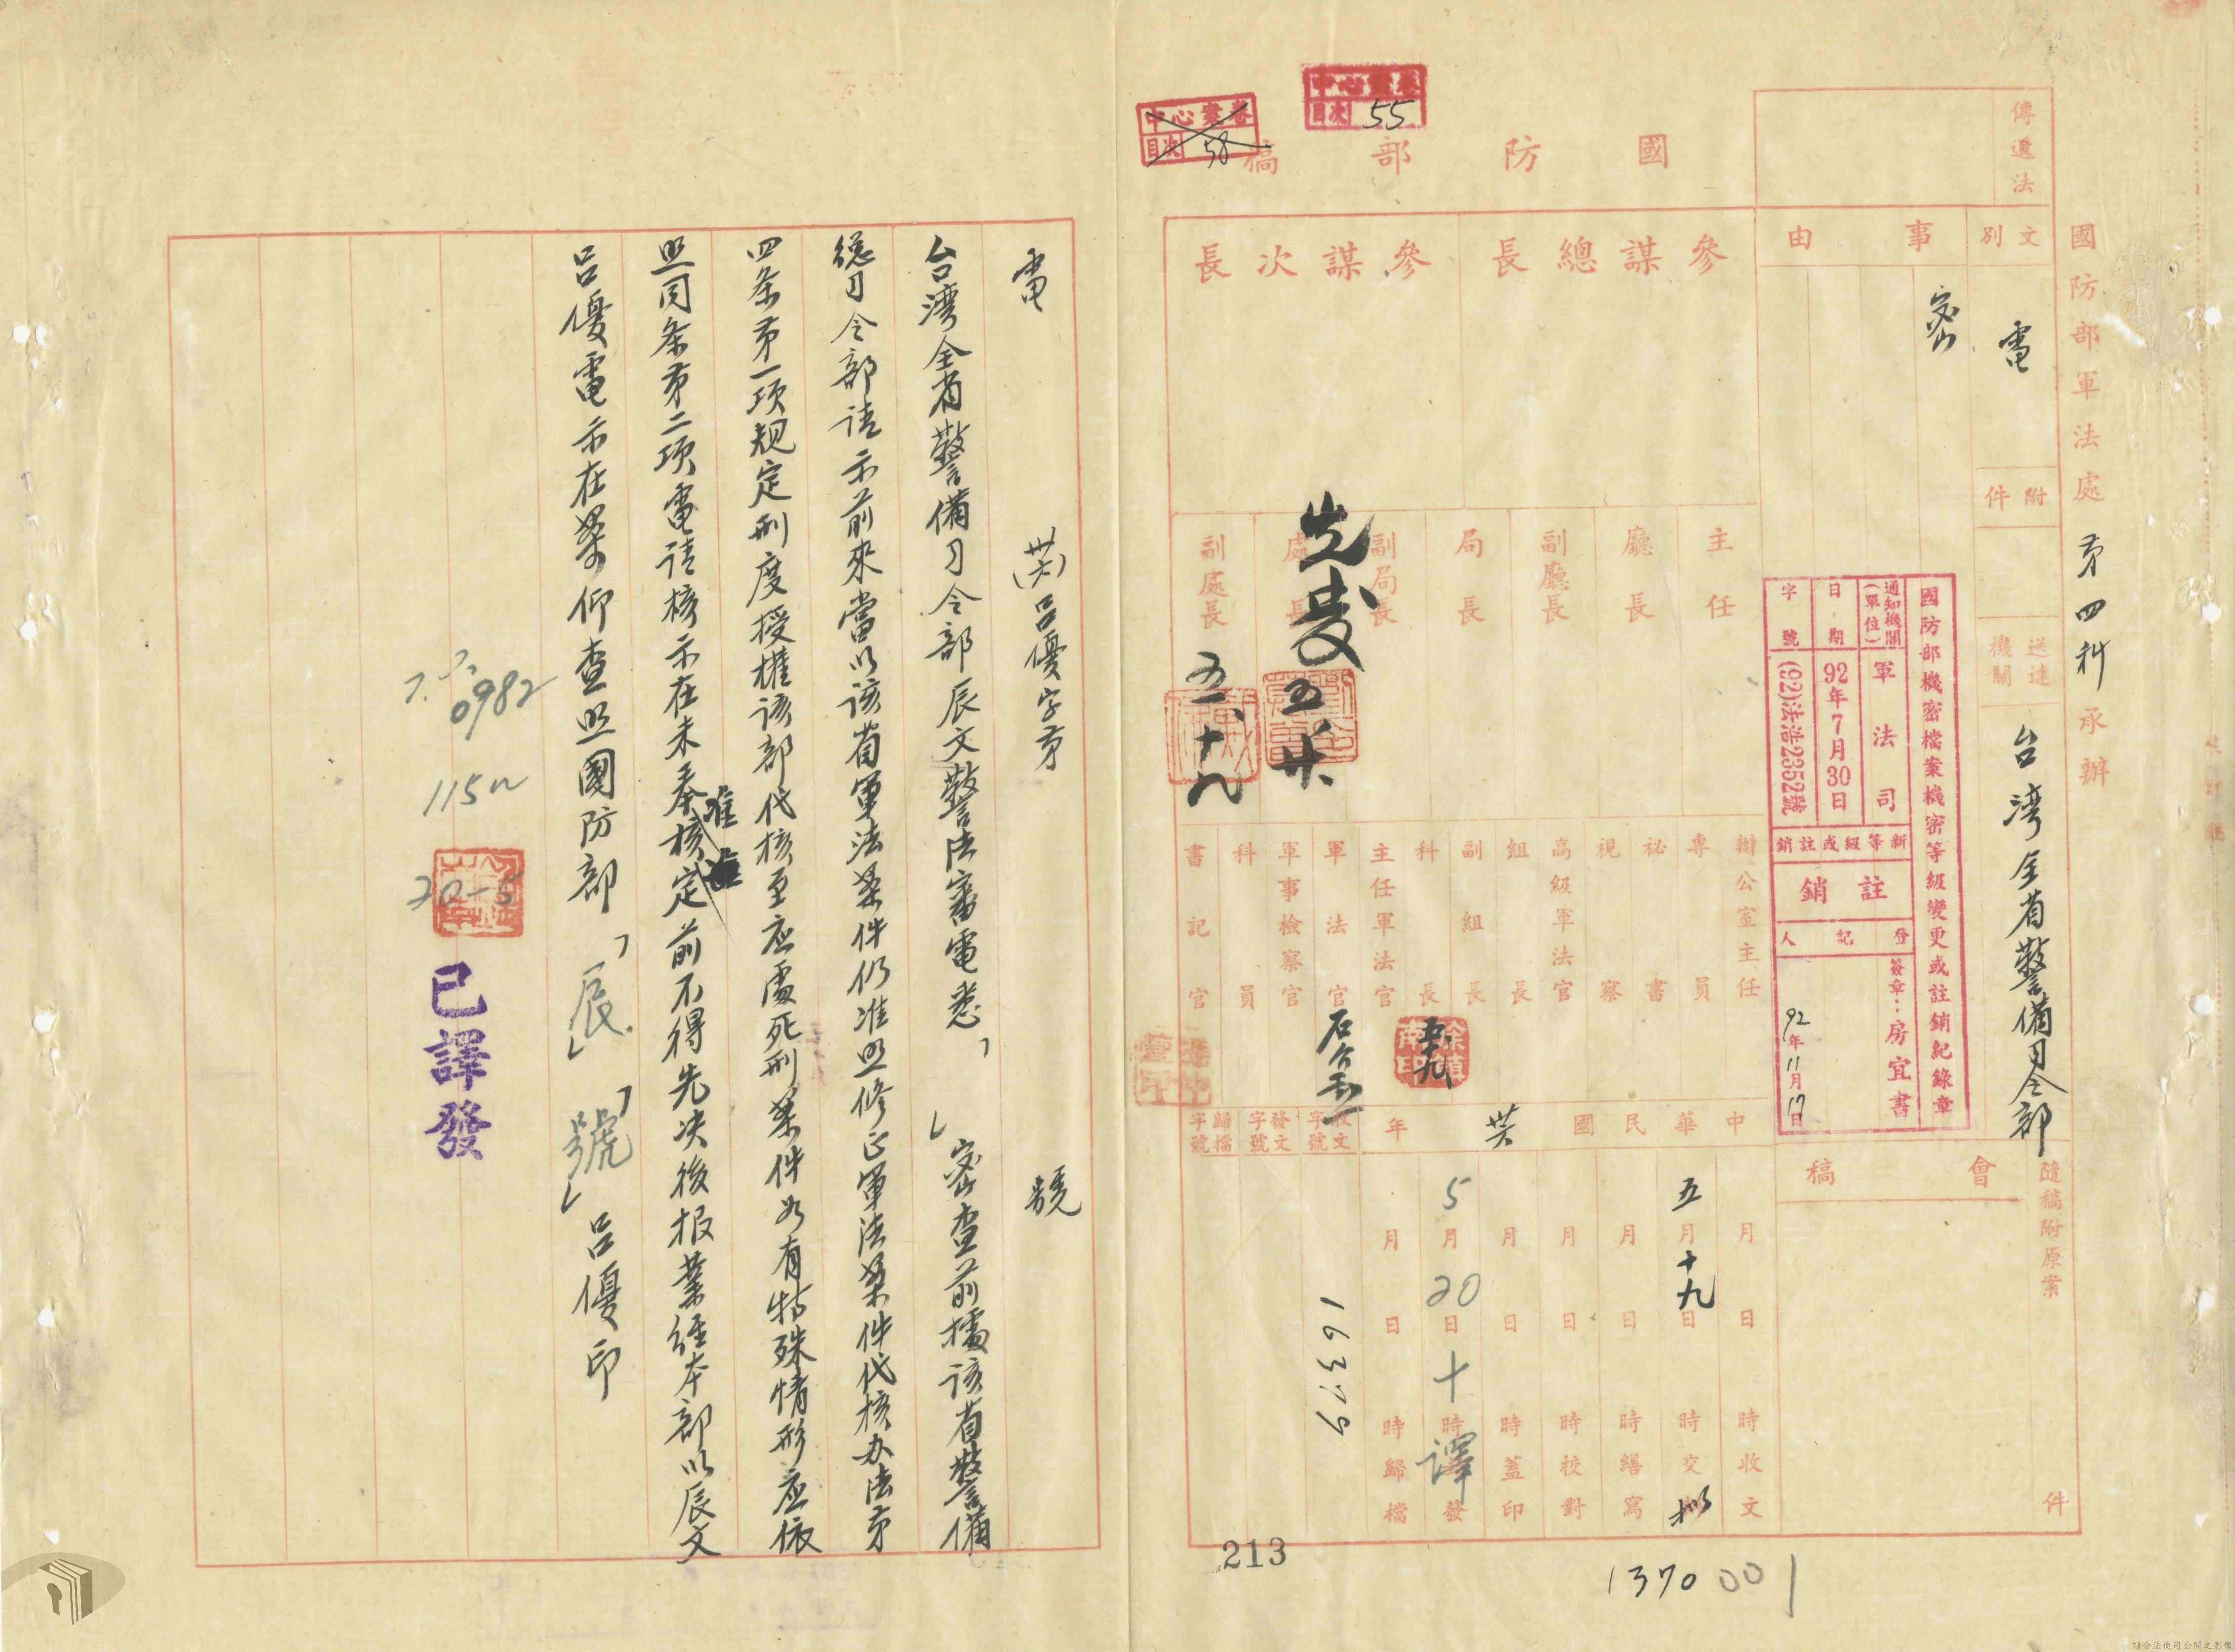 中心業卷
目次 55
中心業卷
目次 58
國防部稿
國防部軍法處第四科承辦
傳遞法
文別
電
附件
送達機關
台湾全省警備司令部
事由
密
參謀總長
參謀次長
主任
廳長
副廳長
局長
副局長
處長
副處長
五、十九
國防部機密檔案機密等級變更或註銷紀錄章
通知機關(單位)
軍法司
日期
92年7月30日
字號
(92)法浩2352號
新等級或註銷
註銷
登記人
簽章:房宜書
92年11月17日
辦公室主任
專員
秘書
視察
高級軍法官
組長
副組長
科長
主任軍法官
軍法官
軍事檢察官
科員
書記官
會稿
隨稿附原案
件
中華民國 年
收文字號
發文字號
歸檔字號
月日時收文
五月十九日時交擬
月日時繕寫
月日時校對
月日時蓋印
5月20日十時譯發
月日時歸檔
16379
213
1370001
電 呂優字第 號
台湾全省警備司令部辰文警法審電悉「」密查前據該省警備
總司令部請示前來當以該省軍法案件仍准照修正軍法案件代核办法第
四条第一項規定刑度授權該部代核至应處死刑案件如有特殊情形应依
照同条第二項電請核示在未奉核准前不得先決後报業經本部以辰文
呂優電示在案仰查照國防部「辰」「號」呂優印
0982
115
20-5
已譯發
請合法使用公開之影像